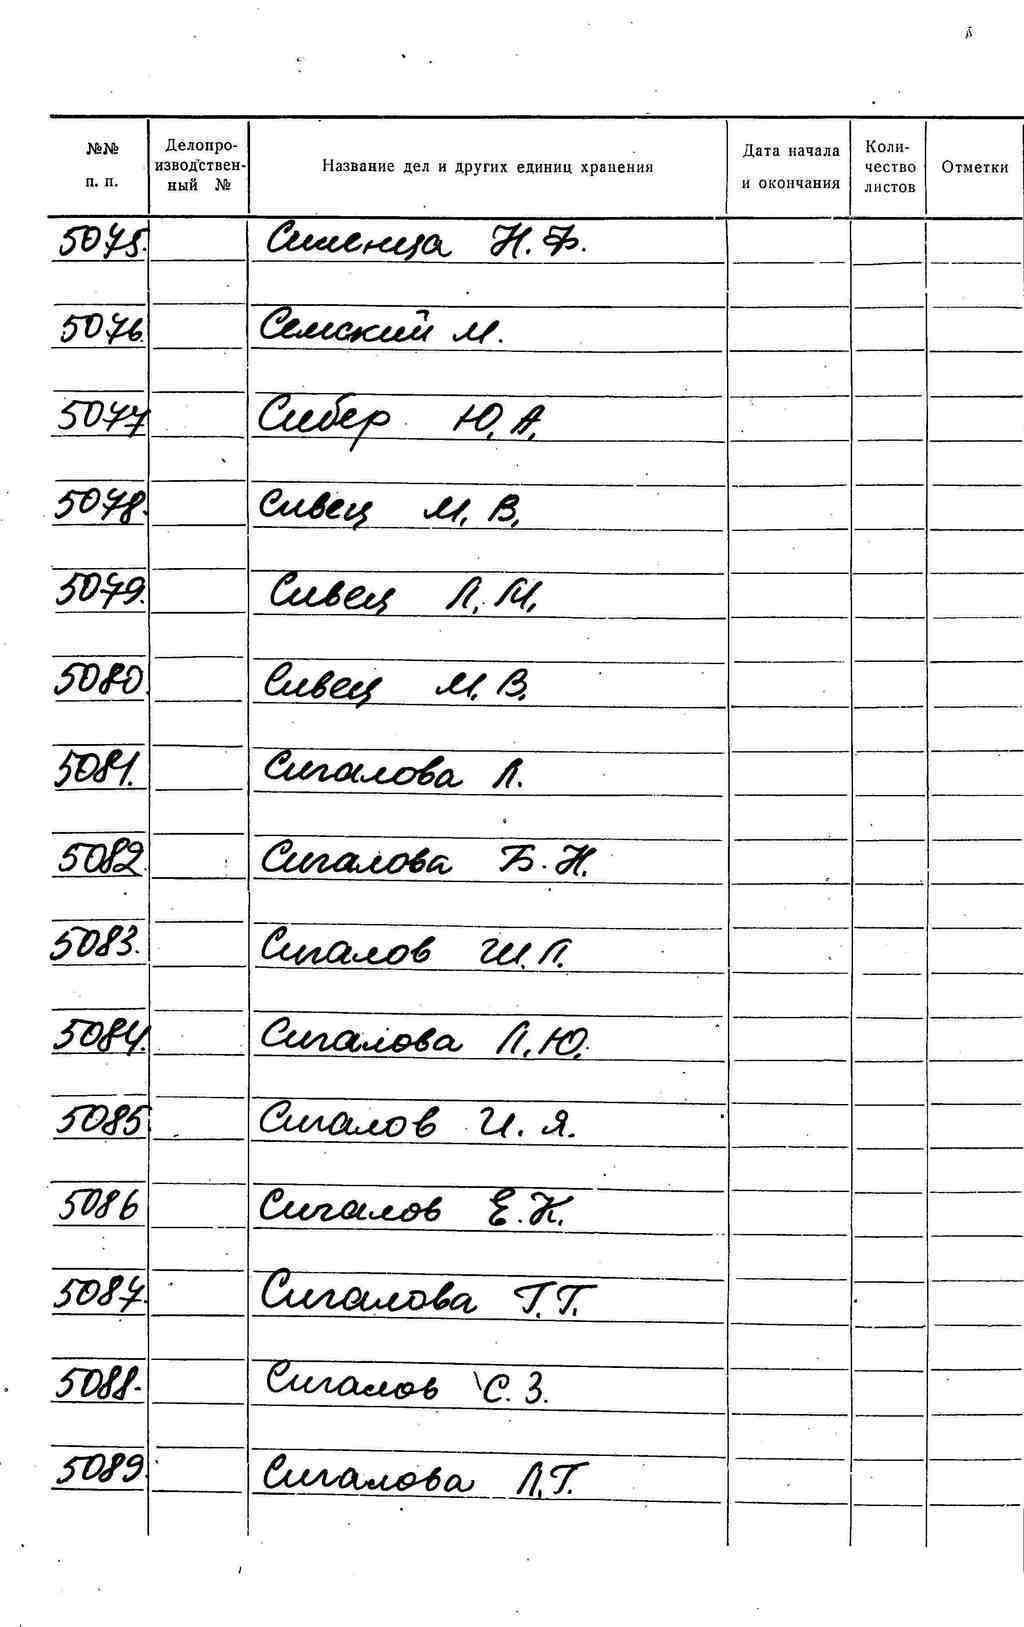 №№ п. п. Делопроизводственный № Название дел и других единиц хранения Дата начала и окончания Количество листов Отметки
5075. Н. Ф.
5076. Семский М.
5077 Сибер Ю. А.
5078. Сивец М. В.
5079. Сивец Л. М.
5080. Сивец М. В.
5081. Сигалова Л.
5082. Сигалова Б. Н.
5083. Сигалов Ш. Л.
5084. Сигалова Л. Ю.
5085 Сигалов И. Я.
5086 Сигалов Е. К.
5087. Сигалова Т. Г.
5088. Сигалов С. З.
5089. Сигалова Л. Г.